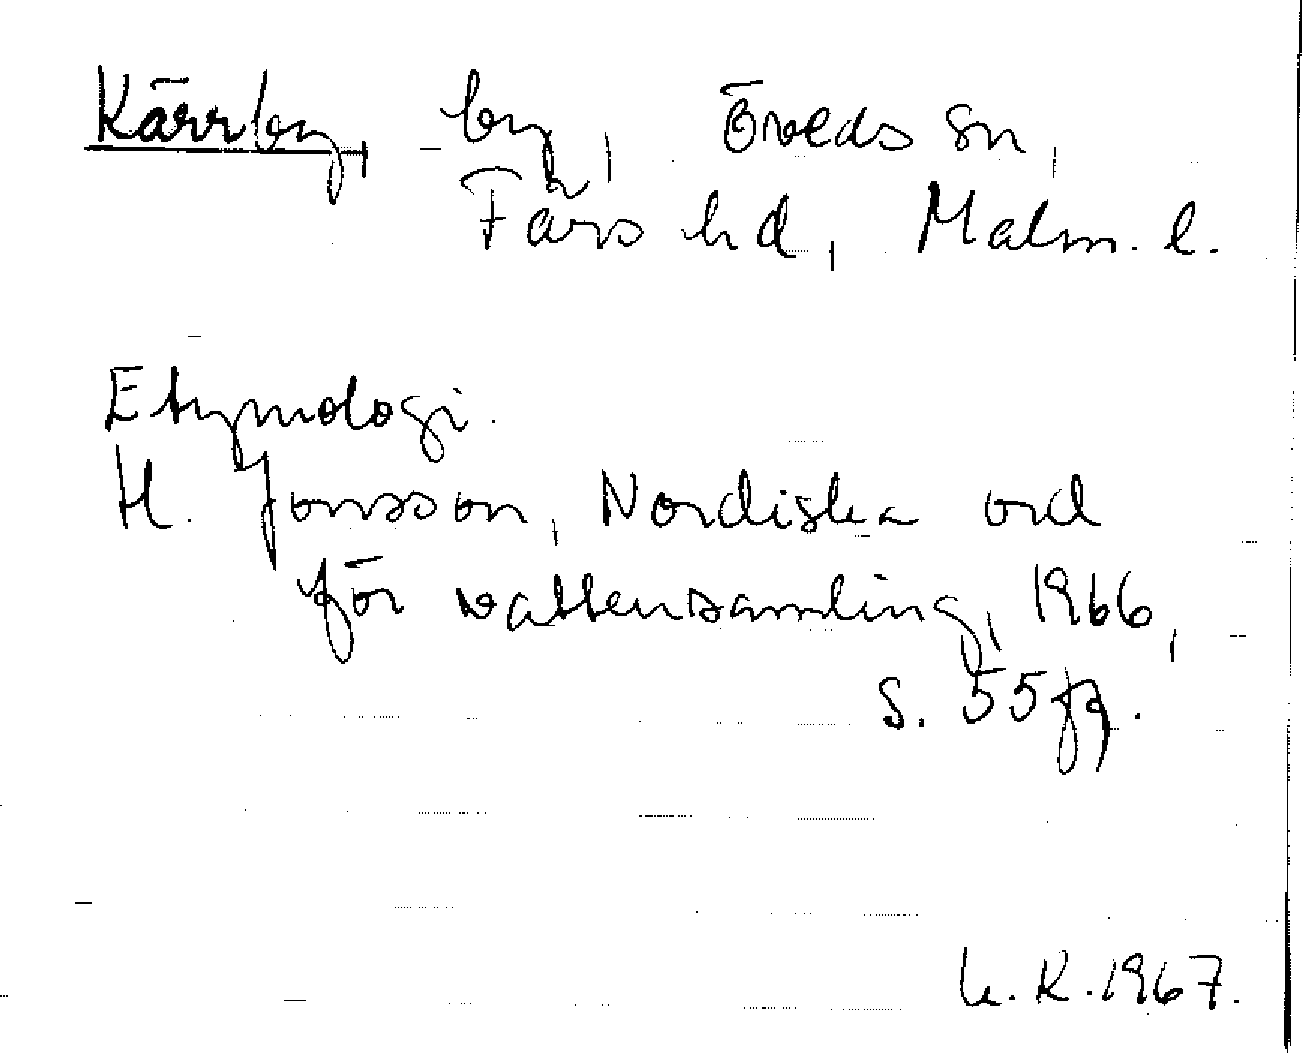 Kärrby, by, Öveds sn,
Färs hd, Malm. l.
Etymologi.
H. Jonsson, Nordiska ord
för vattensamling, 1966,
s. 55 ff.
K. 1967.